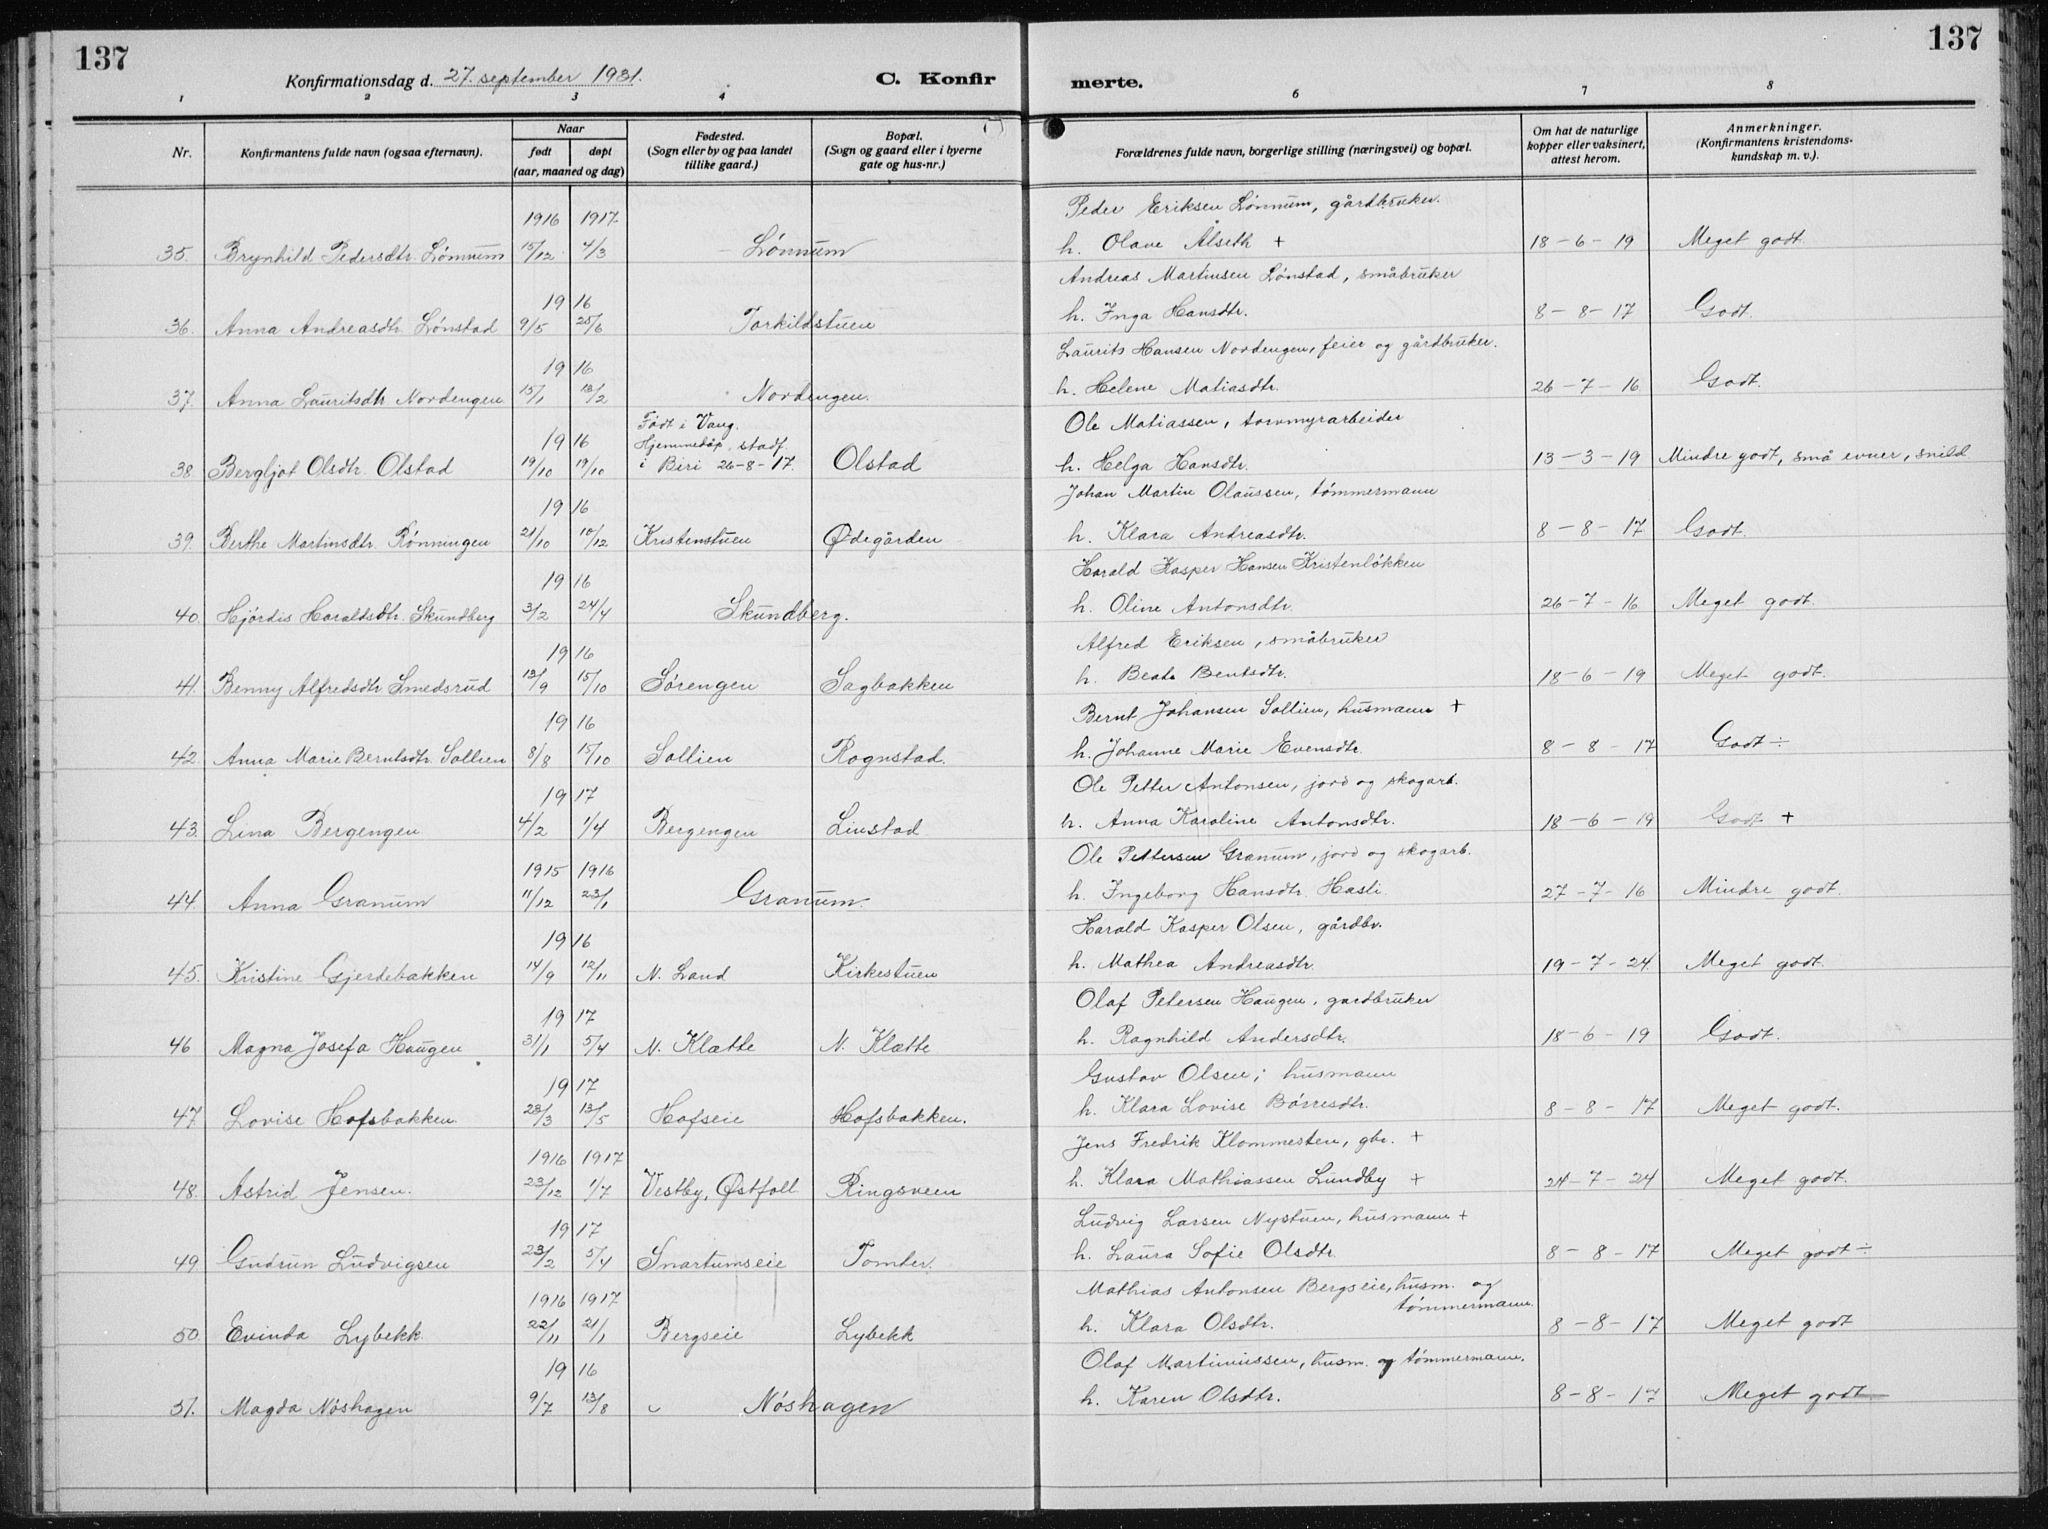 137
137
Konfirmationsdag d. 27. september 1931.
C. Konfir
merte.
1 2 3 4 6 7 8
Nr.
Konfirmantens fulde navn (ogsaa efternavn).
Naar
født
døpt
(aar, maaned og dag)
Fødested.
(Sogn eller by og paa landet
tillike gaard.)
Bopæl.
(Sogn og gaard eller i byerne
gate og hus-nr.)
Forældrenes fulde navn, borgerlige stilling (næringsvei) og bopæl.
Om hat de naturlige
kopper eller vaksinert,
attest herom.
Anmerkninger.
(Konfirmantens kristendoms-
kundskap m. v.).
1916 1917 Peder Eriksen Lønnum, gårdbruker.
35. Brynhild Pedersdtr. Lønnum 15/12 4/3 Lønnum h. Olave Alseth + 18-6-19 Meget godt.
1916 Andreas Martinsen Lønstad, småbruker
36. Anna Andreasdtr. Lønstad 9/5 25/6 Torkildstuen h. Inga Hansdtr. 8-8-17 Godt.
1916 Laurits Hansen Nordengen, feier og gårdbruker.
37. Anna Lauritsdtr Nordengen 15/1 13/2 Nordengen. h. Helene Matiasdtr. 26-7-16 Godt.
1916 Født i Vang. Ole Matiassen, torvmyrarbeider
Hjemmedøp. stadf.
38. Bergljot Olsdtr. Olstad 19/10 19/10 i Biri 26-8-17. Olstad h. Helga Hansdtr. 13-3-19 Mindre godt, små evner, snild
1916 Johan Martin Olaussen, tømmermann
39. Berthe Martinsdtr. Rønningen 21/10 10/12 Kristenstuen Ødegården h. Klara Andreasdtr. 8-8-17 Godt.
1916 Harald Kasper Hansen Kristenløkken
40. Hjørdis Haraldsdtr. Skundberg 3/2 24/4 Skundberg. h. Oline Antonsdtr. 26-7-16 Meget godt.
1916 Alfred Eriksen, småbruker
41. Benny Alfredsdtr Smedsrud 13/9 15/10 Sørengen Sagbakken h. Beate Bentsdtr. 18-6-19 Meget godt.
1916 Bernt Johansen Sollien, husmann +
42. Anna Marie Berntsdtr. Sollien 8/8 15/10 Sollien Rognstad. h. Johanne Marie Evensdtr. 8-8-17 Godt ÷
1917 Ole Petter Antonsen, jord og skogarb.
43. Lina Bergengen 4/2 1/4 Bergengen Linstad h. Anna Karoline Antonsdtr. 18-6-19 Godt +
1915 1916 Ole Pettersen Granum, jord og skogarb.
44. Anna Granum 11/12 23/1 Granum. h. Ingeborg Hansdtr. Hasli. 27-7-16 Mindre godt.
1916 Harald Kasper Olsen, gårdbr.
45. Kristine Gjerdebakken 14/9 12/11 N. Land Kirkestuen h. Mathea Andreasdtr. 19-7-24. Meget godt.
1917 Olaf Petersen Haugen, gardbruker
46 Magna Josefa Haugen 31/1 5/4 N. Klætte N. Klætte h. Ragnhild Andersdtr. 18-6-19 Godt.
1917 Gustav Olsen, husmann
47. Lovise Hofsbakken. 23/3 13/5 Hofseie Hofsbakken. h. Klara Lovise Børresdtr. 8-8-17 Meget godt.
1916 1917 Jens Fredrik Klommesten, gbr. +
48. Astrid Jensen. 23/12 1/7 Vestby, Østfoll Ringsveen h. Klara Mathiassen Lundby + 24-7-24 Meget godt.
1917 Ludvig Larsen Nystuen, husmann +
49. Gudrun Ludvigsen 23/2 5/4 Snartumseie Tomter. h. Laura Sofie Olsdtr. 8-8-17 Meget godt ÷
1916 1917 Mathias Antonsen Bergseie, husm. og
tømmermann.
50. Evinda Lybekk. 22/11 21/1 Bergseie Lybekk h. Klara Olsdtr. 8-8-17 Meget godt
1916 Olaf Martinussen, husm. og tømmermann.
51. Magda Nøshagen 9/7 13/8 Nøshagen h. Karen Olsdtr. 8-8-17 Meget godt